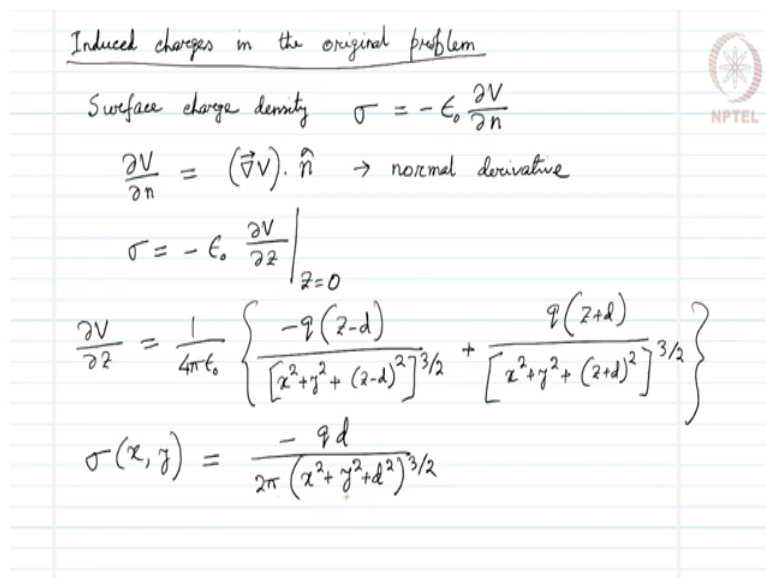 Induced charges in the original problem
Surface charge density σ = - ϵ₀ ∂V/∂n
NPTEL
∂V/∂n = (∇⃗V). n̂ → normal derivative
σ = - ϵ₀ ∂V/∂z |z=0
∂V/∂z = 1/4πϵ₀ { -q(z-d)/[x²+y²+(z-d)²]^3/2 + q(z+d)/[x²+y²+(z+d)²]^3/2 }
σ(x, y) = - qd/2π(x²+y²+d²)^3/2